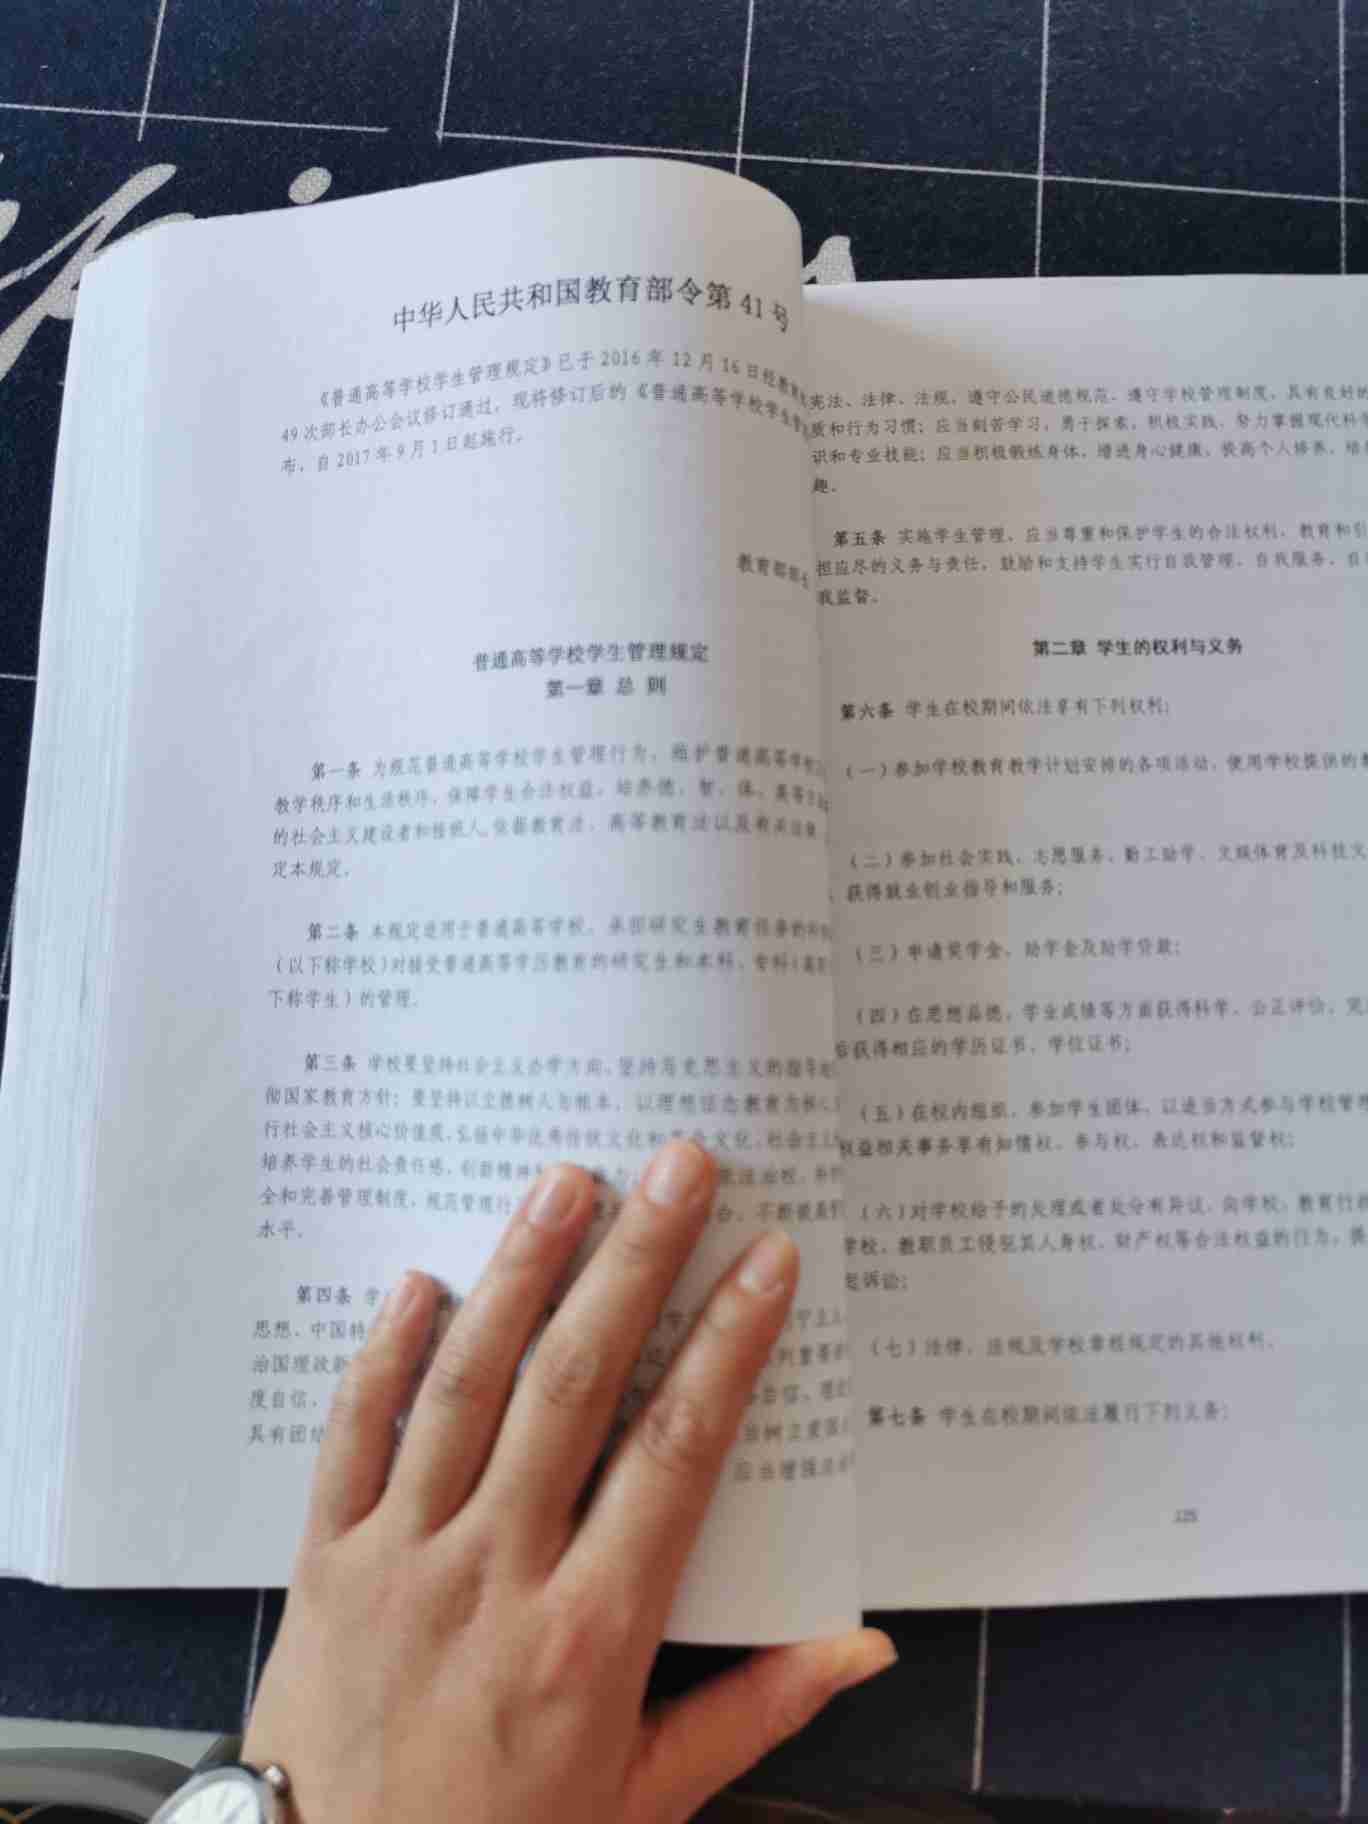 中华人民共和国教育部令第 41 号
《普通高等学校学生管理规定》已于 2016 年 12 月 16 日经教育
49 次部长办公会议修订通过，现将修订后的《普通高等学校学生管
布，自 2017 年 9 月 1 日起施行。
教育部部长
普通高等学校学生管理规定
第一章 总 则
第一条 为规范普通高等学校学生管理行为，维护普通高等学校
教学秩序和生活秩序，保障学生合法权益，培养德、智、体、美等方面
的社会主义建设者和接班人，依据教育法、高等教育法以及有关法律、
定本规定。
第二条 本规定适用于普通高等学校、承担研究生教育任务的科
（以下称学校）对接受普通高等学历教育的研究生和本科、专科（高
下称学生）的管理。
第三条 学校要坚持社会主义办学方向，坚持马克思主义的指导
彻国家教育方针；要坚持以立德树人为根本，以理想信念教育为核心
行社会主义核心价值观，弘扬中华优秀传统文化和 文化、社会主义
培养学生的社会责任感、创新精神 依法治校，
全和完善管理制度，规范管理行 不断提高
水平。
第四条 学
思想、中国特
治国理政新
度自信，
具有团结 树立爱国
应当增强
宪法、法律、法规，遵守公民道德规范，遵守学校管理制度，具有良好的
质和行为习惯；应当刻苦学习，勇于探索，积极实践，努力掌握现代科学
识和专业技能；应当积极锻炼身体，增进身心健康，提高个人修养，培
趣。
第五条 实施学生管理，应当尊重和保护学生的合法权利，教育和引
担应尽的义务与责任，鼓励和支持学生实行自我管理、自我服务、自
我监督。
第二章 学生的权利与义务
第六条 学生在校期间依法享有下列权利：
（一）参加学校教育教学计划安排的各项活动，使用学校提供的
（二）参加社会实践、志愿服务、勤工助学、文娱体育及科技文
获得就业创业指导和服务；
（三）申请奖学金、助学金及助学贷款；
（四）在思想品德、学业成绩等方面获得科学、公正评价，完
后获得相应的学历证书、学位证书；
（五）在校内组织、参加学生团体，以适当方式参与学校管理
权益相关事务享有知情权、参与权、表达权和监督权；
（六）对学校给予的处理或者处分有异议，向学校、教育行
学校、教职员工侵犯其人身权、财产权等合法权益的行为，提
起诉讼；
（七）法律、法规及学校章程规定的其他权利。
第七条 学生在校期间依法履行下列义务：
125